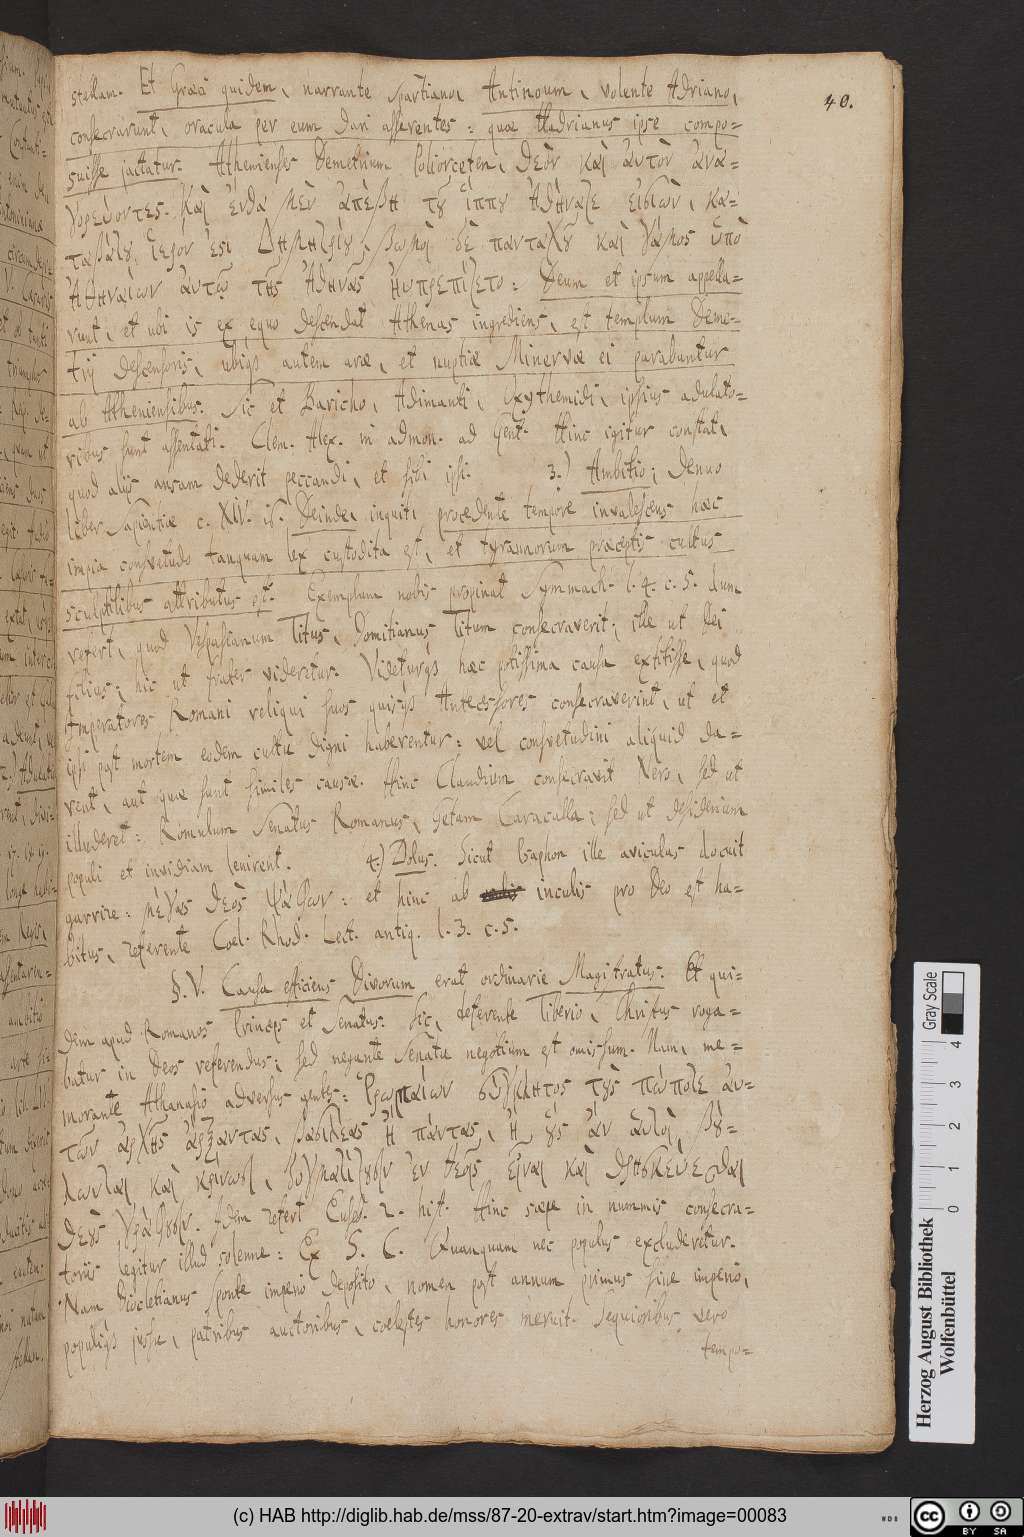 40.
stellam. Et Græci quidem, narrante Spartiano, Antinoum, volente Adriano,
consecrârunt, oracula per eum dari asserentes: quæ Hadrianus ipse compo=
suisse jactatur. Athenienses Demetrium Poliorcetem, Θεὸν καὶ ἀυτὸν ἀνα=
γορεύοντες. Καὶ ἔνθα μὲν ἀπέβη τοῦ ἵππου Ἀθήναζε εἰσιὼν, κα=
ταβάτου, ἱερον ἐςι Δημητρίου, βωμοὶ δὲ πανταχοῦ καὶ γάμος ὑπὸ
Ἀθηναίων ἀυτῷ τῆς Ἀθηνᾶς ἠυπρεπίζετο: Deum et ipsum appella=
runt, et ubi is ex equo descendat Athenas ingrediens, est templum Deme=
trij descensoris, ubiqs autem aræ, et nuptiæ Minervæ ei parabantur
ab Atheniensibus. Sic et Baricho, Adimanti, Oxythemidi, ipsius adulato=
ribus sunt assentati. Clem. Alex. in admon. ad Gent. Hinc igitur constat,
quod alijs ansam dederit peccandi, et sibi ipsi. 3.) Ambitio; denuo
liber Sapientiæ c. XIV. 15. Deinde, inquit, procedente tempore invalescens hæc
impia consvetudo tanquam lex custodita est, et tyrannorum præceptis cultus
sculptilibus attributus est. Exemplum nobis propinat Symmach. l. 4. c. 5. dum
refert, quod Vespasianum Titus, Domitianus Titum consecraverit; ille ut Dei
filius; hic ut frater videretur. Videturqs hæc potissima causa extitisse, quod
Imperatores Romani reliqui suos quisqs Antecessores consecraverint, ut et
ipsi post mortem eodem cultu digni haberentur: vel consvetudini aliquid da=
rent, aut quæ sunt similes causæ. Hinc Claudium consecravit Nero, sed ut
illuderet: Romulum Senatus Romanus, Getam Caracalla; sed ut desiderium
populi et invidiam lenirent. 4.) Dolus. Sicut Psaphon ille aviculas docuit
garrire: μέγας Θεὸς Ψάφων: et hinc ab inculis pro Deo est ha=
bitus, referente Coel. Rhod. Lect. antiq. l. 3. c. 5.
§. V. Causa efficiens Divorum erat ordinarie Magistratus. Et qui=
dem apud Romanos Princeps et Senatus. Sic, deferente Tiberio, Christus roga=
batur in Deos referendus; sed negante Senatu negotium est omissum. Nam, me=
morante Athanasio adversus gentes: Ῥωμαίων σύγκλητος τοὺς πώποτε ἀυ=
τῶν ἀρχῆς ἄρξαντας, βασιλέας ἢ πάντας, ἢ οὓς ἂν ἀυτοὶ βού=
λωνται καὶ κρίνωσι, δογματίζουσιν ἐν θεοῖς εἶναι καὶ θρησκεύεσθαι
Θεοὺς γράφουσιν. Idem refert Euseb. 2. hist. Hinc sæpe in nummis consecra=
toriis legitur illud solenne: Ex S. C. Quanquam nec populus excluderetur.
Nam Diocletianus sponte imperio deposito, nomen post annum primus sine imperio,
populiqs jussu, patribus auctoribus, coelestes honores meruit. Sequioribus vero
tempo=
Gray Scale
0 1 2 3 4
Herzog August Bibliothek
Wolfenbüttel
(c) HAB http://diglib.hab.de/mss/87-20-extrav/start.htm?image=00083
cc BY SA